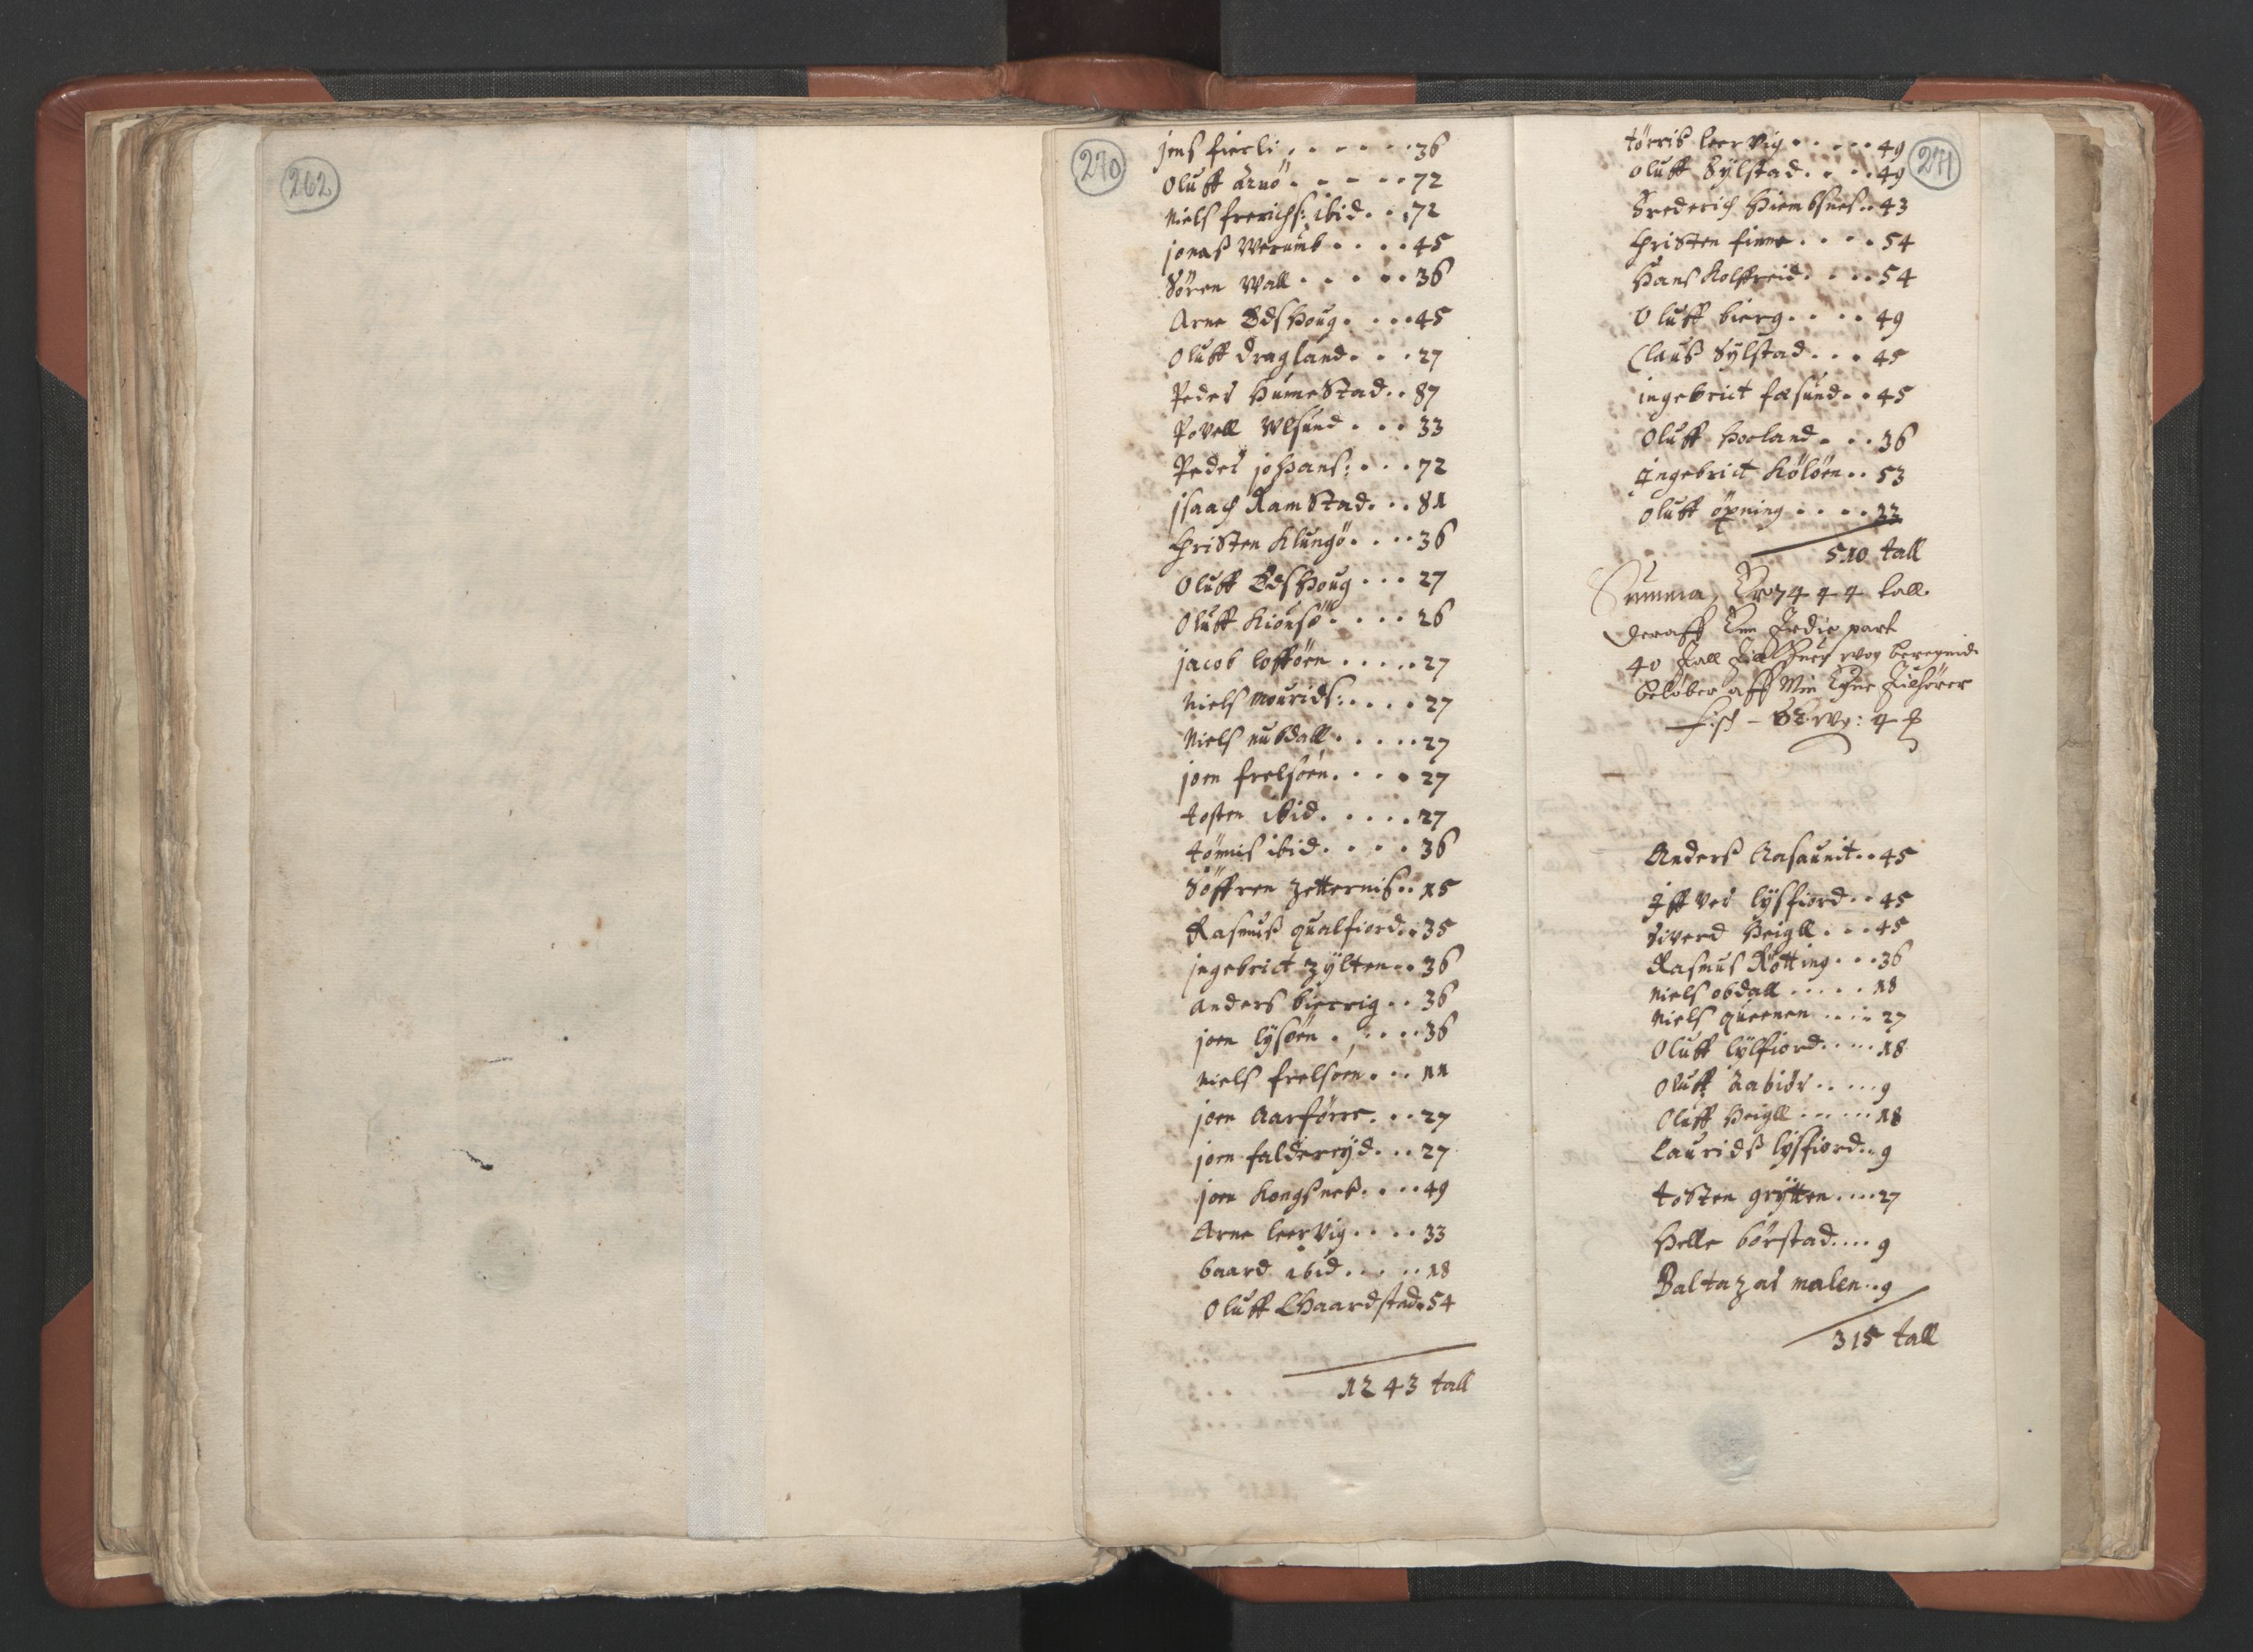 262
270
jens fierli . . . . . . 36
Oluff Arnö . . . . . 72
Niels frerichs: ibid . . 72
jonaß Werumb . . . . 45
Sören Wall . . . . . 36
Arne Edshoug . . . . 45
Oluff dragland . . . 27
Peder HumeStad . . 87
Povell Wlsund . . . 33
Peder johans: . . . 72
jsaach RamStad . . . 81
ChriSten Klungö . . . . 36
Oluff Edshoug . . . 27
Oluff Kionsö . . . . 26
jacob lofföen . . . . . 27
Niels mourids: . . . . 27
Niels nubdall . . . . . 27
joen frelsöen . . . . 27
tosten ibid . . . . . 27
tönnis ibid . . . . 36
Söffren Zetternis . . 15
Rasmuß qualfiord . . 35
jngebrict Zÿlten . . 36
anders bierrig . . 36
joen lysöen . . . . . 36
Niels frelsöen . . . 11
joen Aarförre . . . 27
joen faldereÿd . . . 27
joen Kongsnes . . . . 49
Arne leerVig . . . . 33
baard ibid . . . . . 18
Oluff Ehaardstad . 54
1243 tall
271
törris leerVig . . . . . 49
Oluff Sÿlstad . . . . 49
Frederich Hiembsnes . . 43
ChriSten finne . . . . 54
Hans Kolffreid . . . . 54
Oluff bierg . . . . 49
Clauß Sÿlstad . . . 45
ingebrict fæsund . . 45
Oluff Hooland . . . 36
Ingebrict Kölöen . . 53
Oluff öpning . . . . 33
510 tall
Summa, Er 7444 tall.
Deraff Em Tredie part
40 Tall Till Huer wog beregnid
beløber aff Min Tilhører
Fisk - 62 wg: 4
Anders Aasaunit . . 45
Iffver lÿsfiord . . 45
Siverd Heigll . . . 45
Rasmus Rötting . . . 36
Niels obdall . . . . . 18
Niels queenen . . . . 27
Oluff lÿlfiord . . . . . 18
Oluff Aabiör . . . . . 9
Oluff Heigll . . . . . 18
Lauridß lÿsfiord . . 9
toSten grÿtten . . . . 27
Helle börstad . . . . 9
Baltazar malen . . 9
315 tall